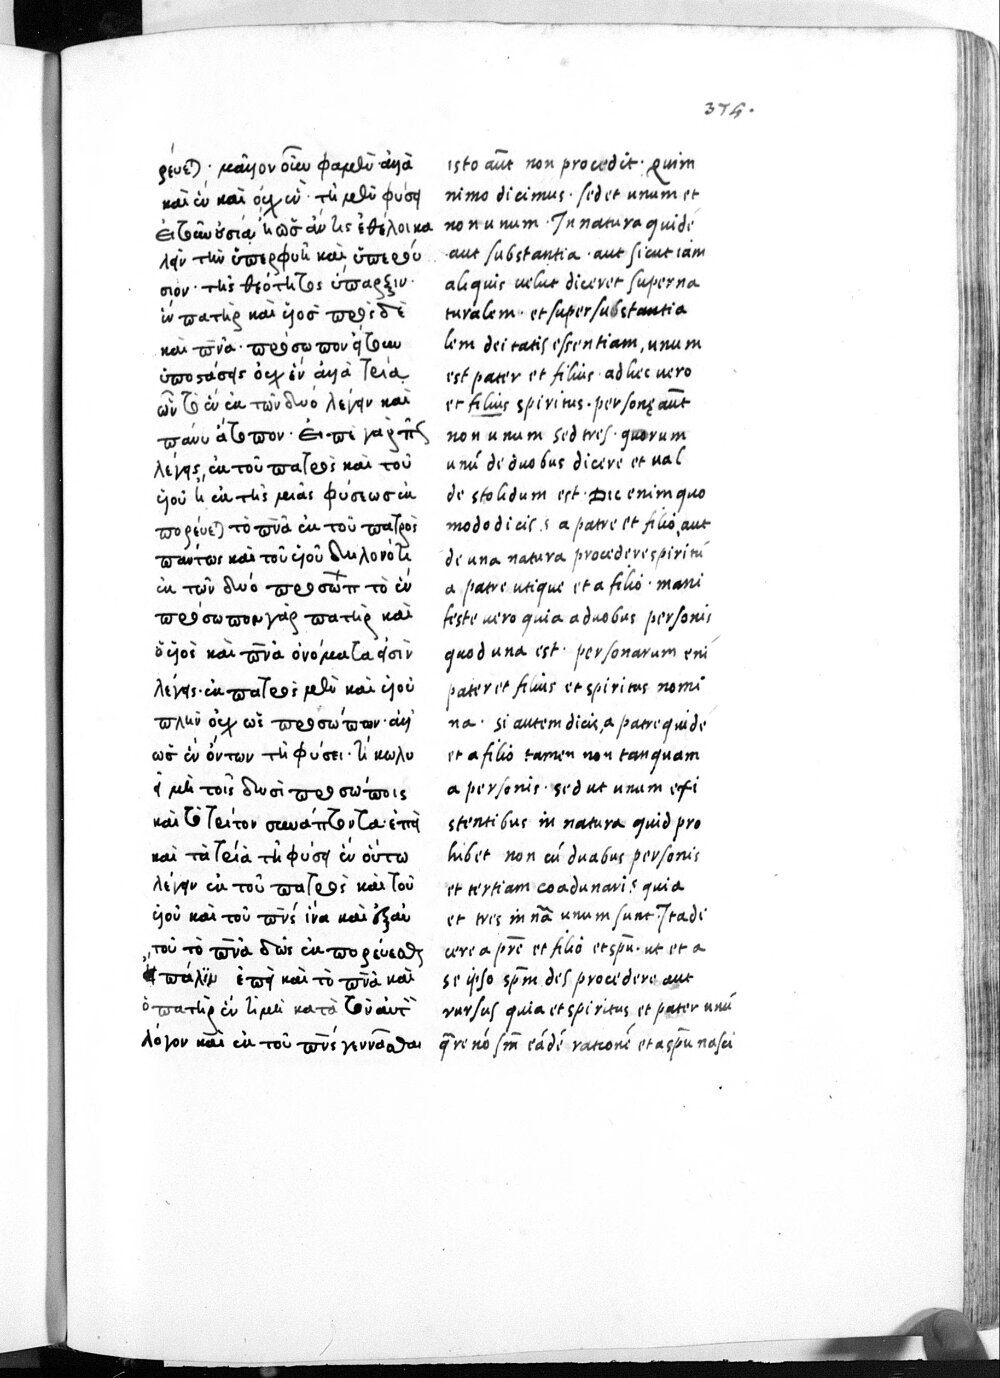 374.
ρεύεται · μᾶλλον οὕτω φαμὲν ἀλλὰ
καὶ ἓν καὶ οὐχ ἓν · τῇ μὲν φύσει
εἴτουν οὐσίᾳ ἢ ὡς ἄν τις ἐθέλοι κα
λεῖν τὴν ὑπερφυῆ καὶ ὑπερού
σιον · τῆς θεότητος ὕπαρξιν ·
ἓν πατὴρ καὶ υἱὸς πρὸς δὲ
καὶ πνα · πρόσωπον ἤτουν
ὑποστάσεις οὐχ ἓν ἀλλὰ τρία
ὧν τὸ ἓν ἐκ τῶν δυό λέγειν καὶ
πάνυ ἄτοπον · εἰπὲ γὰρ πῶς
λέγεις ἐκ τοῦ πατρὸς καὶ τοῦ
υἱοῦ ἢ ἐκ τῆς μιᾶς φύσεως ἐκ
πορεύεται τὸ πνα ἐκ τοῦ πατρὸς
πάντως καὶ τοῦ υἱοῦ δηλονότι
ἐκ τῶν δυό προσώπ τὸ ἓν
πρόσωπον γὰρ πατὴρ καὶ
ὁ υἱὸς καὶ πνα ὀνόματα εἰσὶν
λέγεις · ἐκ πατρὸς μὲν καὶ υἱοῦ
πλὴν οὐχ ὡς προσώπων · ἀλλ'
ὡς ἓν ὄντων τῇ φύσει · τί κωλυ
ει μὴ τοῖς δυσὶ προσώποις
καὶ τὸ τρίτον συνάπτοντα · ἐπεὶ
καὶ τὰ τρία τῇ φύσει ἓν οὕτω
λέγειν ἐκ τοῦ πατρὸς καὶ τοῦ
υἱοῦ καὶ τοῦ πνς ἵνα καὶ ἐξ αυ
τοῦ τὸ πνα δῷς ἐκπορεύεσθαι
ἢ πάλιν ἐπεὶ καὶ τὸ πνα καὶ
ὁ πατὴρ ἓν τί μὴ κατὰ τὸν αὐτὸν
λόγον καὶ ἐκ τοῦ πνς γεννᾶσθαι
isto aut non procedit · Quim
nimo dicimus · sed et unum et
non unum · In natura quidē
aut substantia · aut sicut iam
aliquis velut diceret superna
turalem · et supersubstantia
lem deitatis essentiam, unum
est pater et filius · adhec vero
et filius spiritus · personę aūt
non unum sed tres · quorum
unū de duobus dicere et val
de stolidum est · Dic enim quo
modo dicis a patre et filio, aut
de una natura procedere spiritū
a patre utique et a filio · mani
feste vero quia a duobus personis
quod una est · personarum eni
pater et filius et spiritus nomi
na · si autem dicis, a patre quidē
et a filio tamen non tanquam
a personis · sed ut unum exi
stentibus in natura quid pro
hibet non cū duabus personis
et tertiam coadunari? quia
et tres in nā unum sunt · Ita di
cere a pre et filio et spū · ut et a
se ipso spm des procedere aut
rursus quia et spiritus et pater unū
qre nō sm eādē rationē et a spū nasci